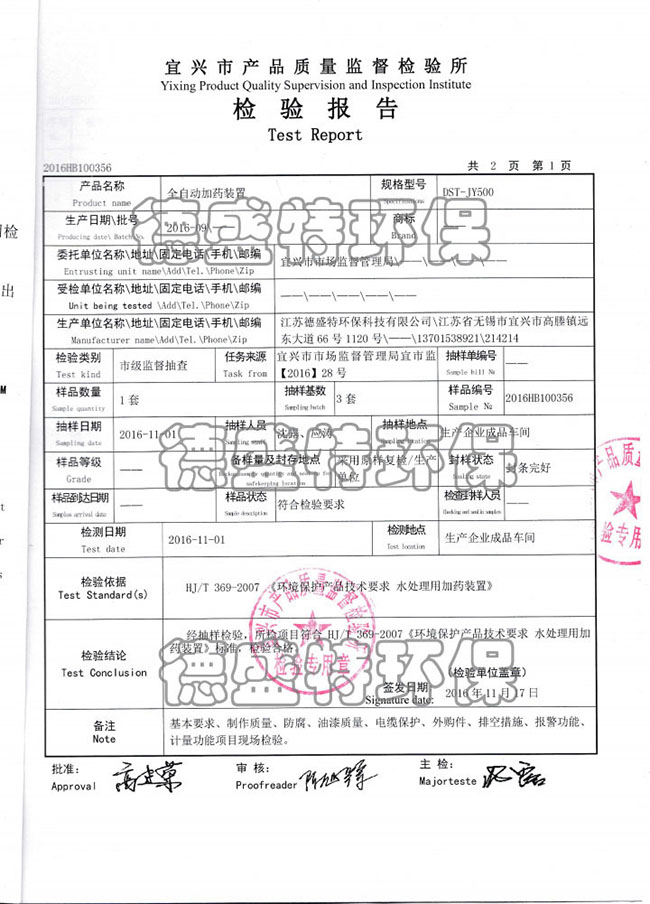 宜兴市产品质量监督检验所
Yixing Product Quality Supervision and Inspection Institute
检 验 报 告
Test Report
2016HB100356 共 2 页 第 1 页
产品名称 全自动加药装置 规格型号 DST-JY500
Product name Specifications
生产日期\批号 2016-09\— 商标
Producing date\ Batch No. Brand
委托单位名称\地址\固定电话\手机\邮编 宜兴市市场监督管理局\——\——\——\——
Entrusting unit name\Add\Tel.\Phone\Zip
受检单位名称\地址\固定电话\手机\邮编 ——\——\——\——\——
Unit being tested \Add\Tel.\Phone\Zip
生产单位名称\地址\固定电话\手机\邮编 江苏德盛特环保科技有限公司\江苏省无锡市宜兴市高塍镇远
Manufacturer name\Add\Tel.\Phone\Zip 东大道 66 号 1120 号\——\13701538921\214214
检验类别 市级监督抽查 任务来源 宜兴市市场监督管理局宜市监 抽样单编号 ——
Test kind Task from 【2016】28 号 Sample bill №
样品数量 1 套 抽样基数 3 套 样品编号 2016HB100356
Sample quantity Sampling batch Sample №
抽样日期 2016-11-01 抽样人员 抽样地点 生产企业成品车间
Sampling date Sampling station
样品等级 —— 备样量及封存地点 采用原样复检/生产 封样状态 封条完好
Grade safekeeping location 单位 Sealing state
样品到达日期 —— 样品状态 符合检验要求 检查封样人员 ——
Samples arrival date Sample description Checking and sealing samples
检测日期 2016-11-01 检测地点 生产企业成品车间
Test date Test location
检验依据 HJ/T 369-2007 《环境保护产品技术要求 水处理用加药装置》
Test Standard(s)
检验结论 经抽样检验，所检项目符合 HJ/T 369-2007《环境保护产品技术要求 水处理用加
Test Conclusion 药装置》标准，检验合格。
(检验单位盖章)
签发日期 2016 年 11 月 17 日
Signature date:
备注 基本要求、制作质量、防腐、油漆质量、电缆保护、外购件、排空措施、报警功能、
Note 计量功能项目现场检验。
批准： 审 核： 主 检：
Approval Proofreader Majorteste
德盛特环保
德盛特环保
德盛特环保
宜兴市产品质量监督检验所
检验专用章
产品质
验专用
检
出
M
t
r
s